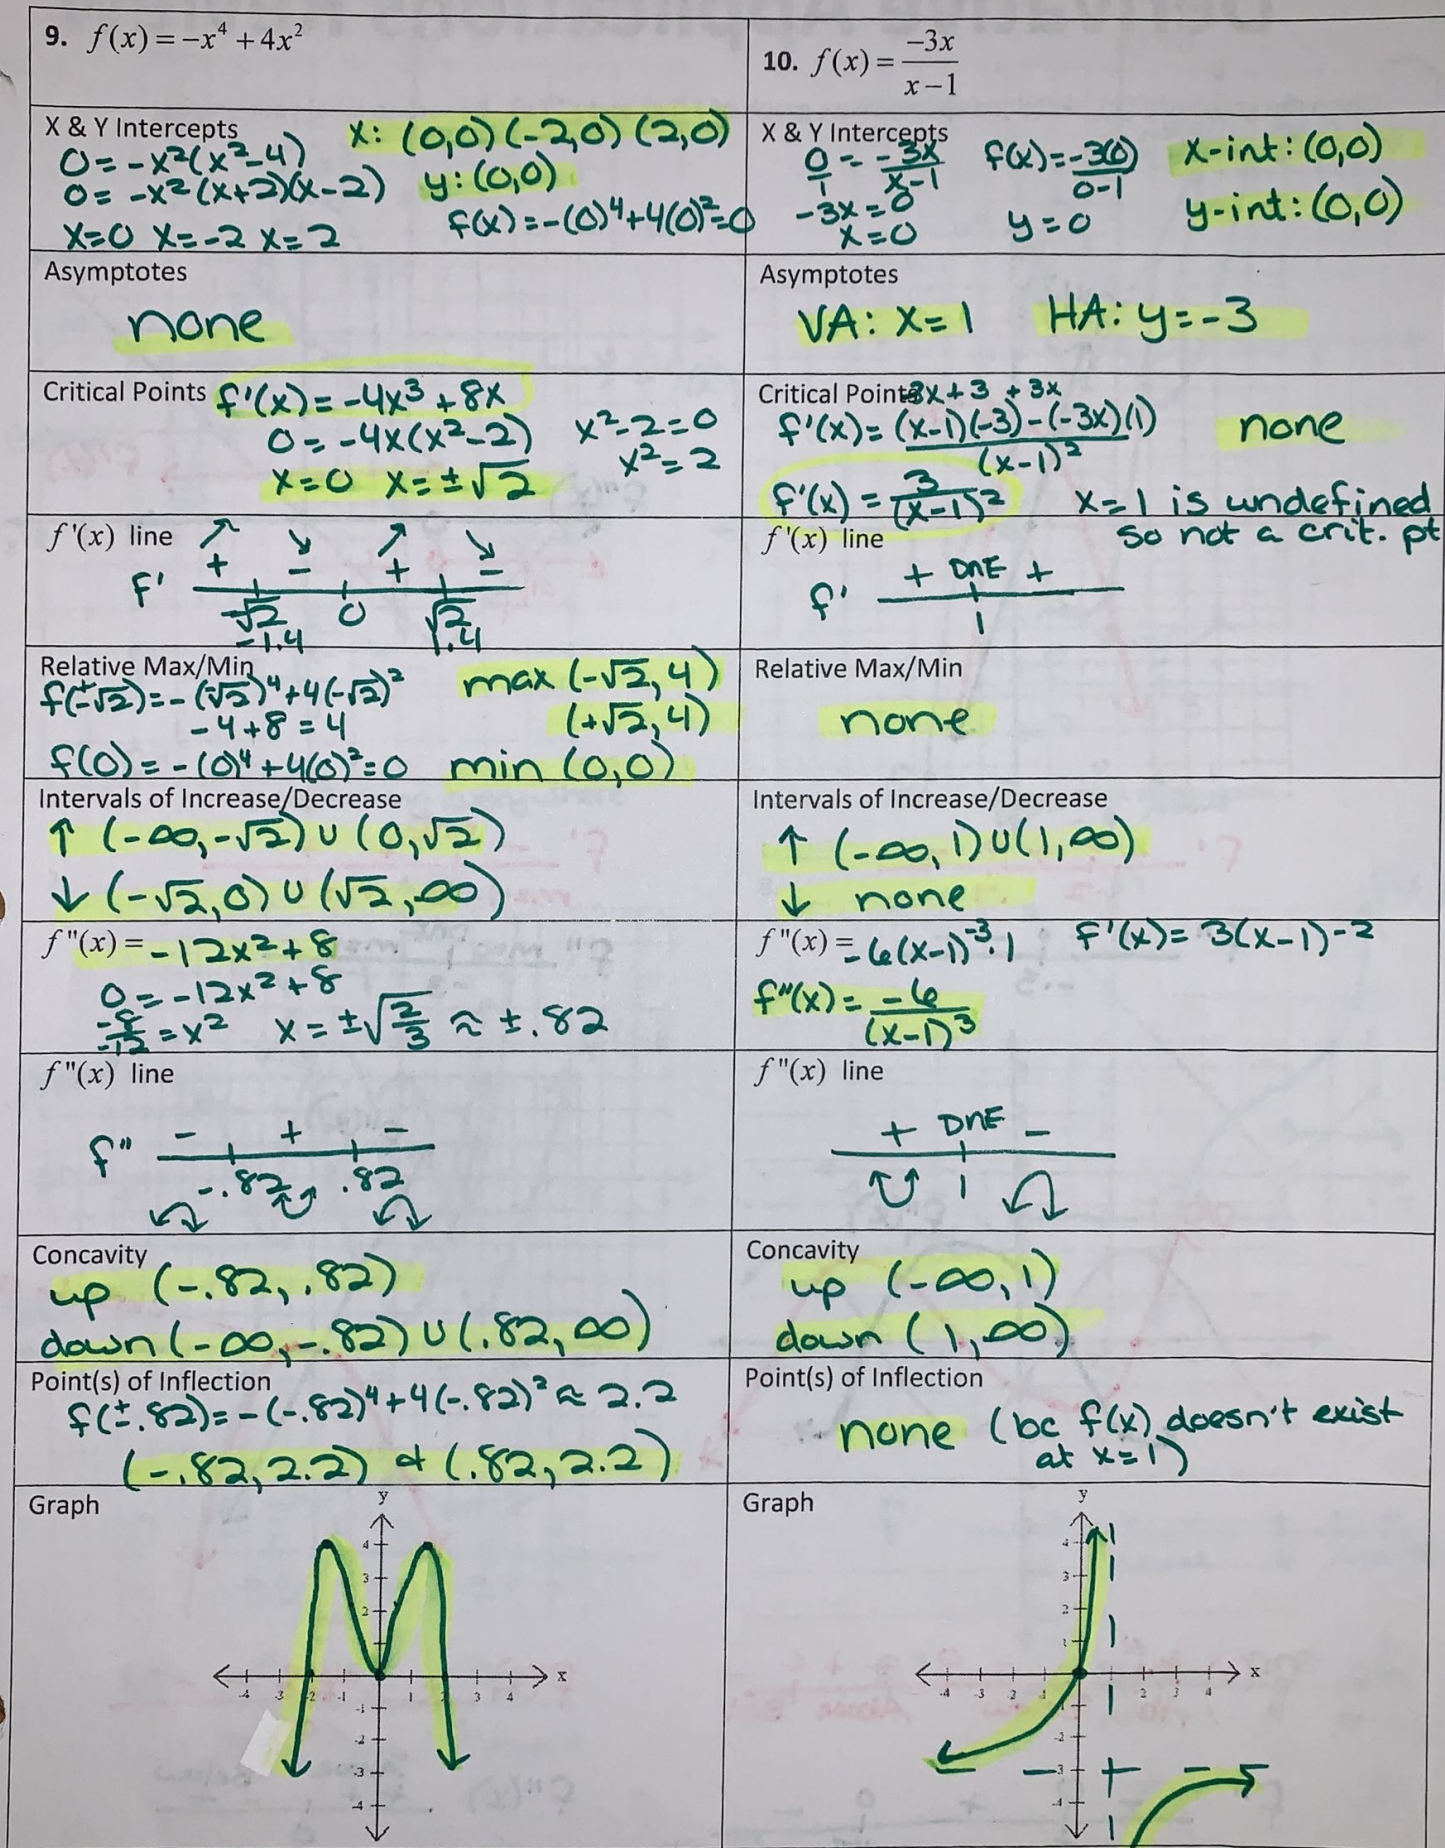 9. f(x) = −x⁴ + 4x²
X & Y Intercepts
x: (0,0) (-2,0) (2,0)
0 = -x²(x²-4)
0 = -x²(x+2)(x-2)
y: (0,0)
x=0 x=-2 x=2
f(x) = -(0)⁴+4(0)²=0
Asymptotes
none
Critical Points
f'(x) = -4x³ + 8x
0 = -4x(x²-2)
x²-2=0
x²=2
x=0 x=±√2
f'(x) line
+ - + -
f'
-√2 0 √2
-1.4 1.4
Relative Max/Min
f(±√2) = -(-√2)⁴+4(-√2)²
-4+8=4
f(0) = -(0)⁴+4(0)²=0
max (-√2, 4)
(+√2, 4)
min (0,0)
Intervals of Increase/Decrease
↑ (-∞,-√2) ∪ (0,√2)
↓ (-√2,0) ∪ (√2,∞)
f"(x) = -12x²+8
0 = -12x²+8
-8/-12 = x² x = ±√2/3 ≈ ±.82
f"(x) line
- + -
f"
-.82 .82
Concavity
up (-.82, .82)
down (-∞,-.82) ∪ (.82,∞)
Point(s) of Inflection
f(±.82) = -(-.82)⁴+4(-.82)² ≈ 2.2
(-.82,2.2) & (.82,2.2)
Graph
y
4
3
2
x
-4 -3 -2 -1 1 2 3 4
-1
-2
-3
-4
10. f(x) = −3x/x−1
X & Y Intercepts
0/1 = -3x/x-1
-3x=0
x=0
f(x) = -3(0)/0-1
y=0
x-int: (0,0)
y-int: (0,0)
Asymptotes
VA: x=1 HA: y=-3
Critical Points
-3x+3 +3x
f'(x) = (x-1)(-3)-(-3x)(1)/(x-1)²
none
f'(x) = 3/(x-1)²
x=1 is undefined
so not a crit. pt
f'(x) line
+ DNE +
f'
1
Relative Max/Min
none
Intervals of Increase/Decrease
↑ (-∞,1)∪(1,∞)
↓ none
f"(x) = -6(x-1)⁻³·1
f'(x) = 3(x-1)-2
f"(x) = -6/(x-1)³
f"(x) line
+ DNE -
1
Concavity
up (-∞,1)
down (1,∞)
Point(s) of Inflection
none (bc f(x) doesn't exist
at x=1)
Graph
y
4
3
2
1
x
-4 -3 -2 -1 2 3 4
-2
-3
-4